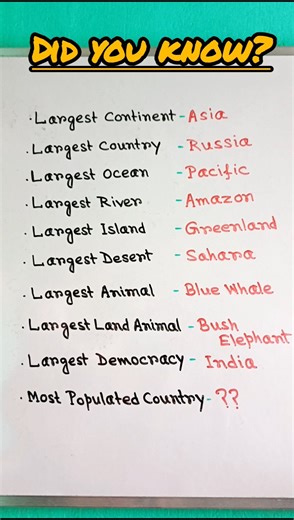 DID YOU KNOW?
· Largest Continent - Asia
· Largest Country - Russia
· Largest Ocean - Pacific
· Largest River - Amazon
· Largest Island - Greenland
· Largest Desert - Sahara
· Largest Animal - Blue Whale
· Largest Land Animal - Bush
Elephant
· Largest Democracy - India
· Most Populated Country - ??